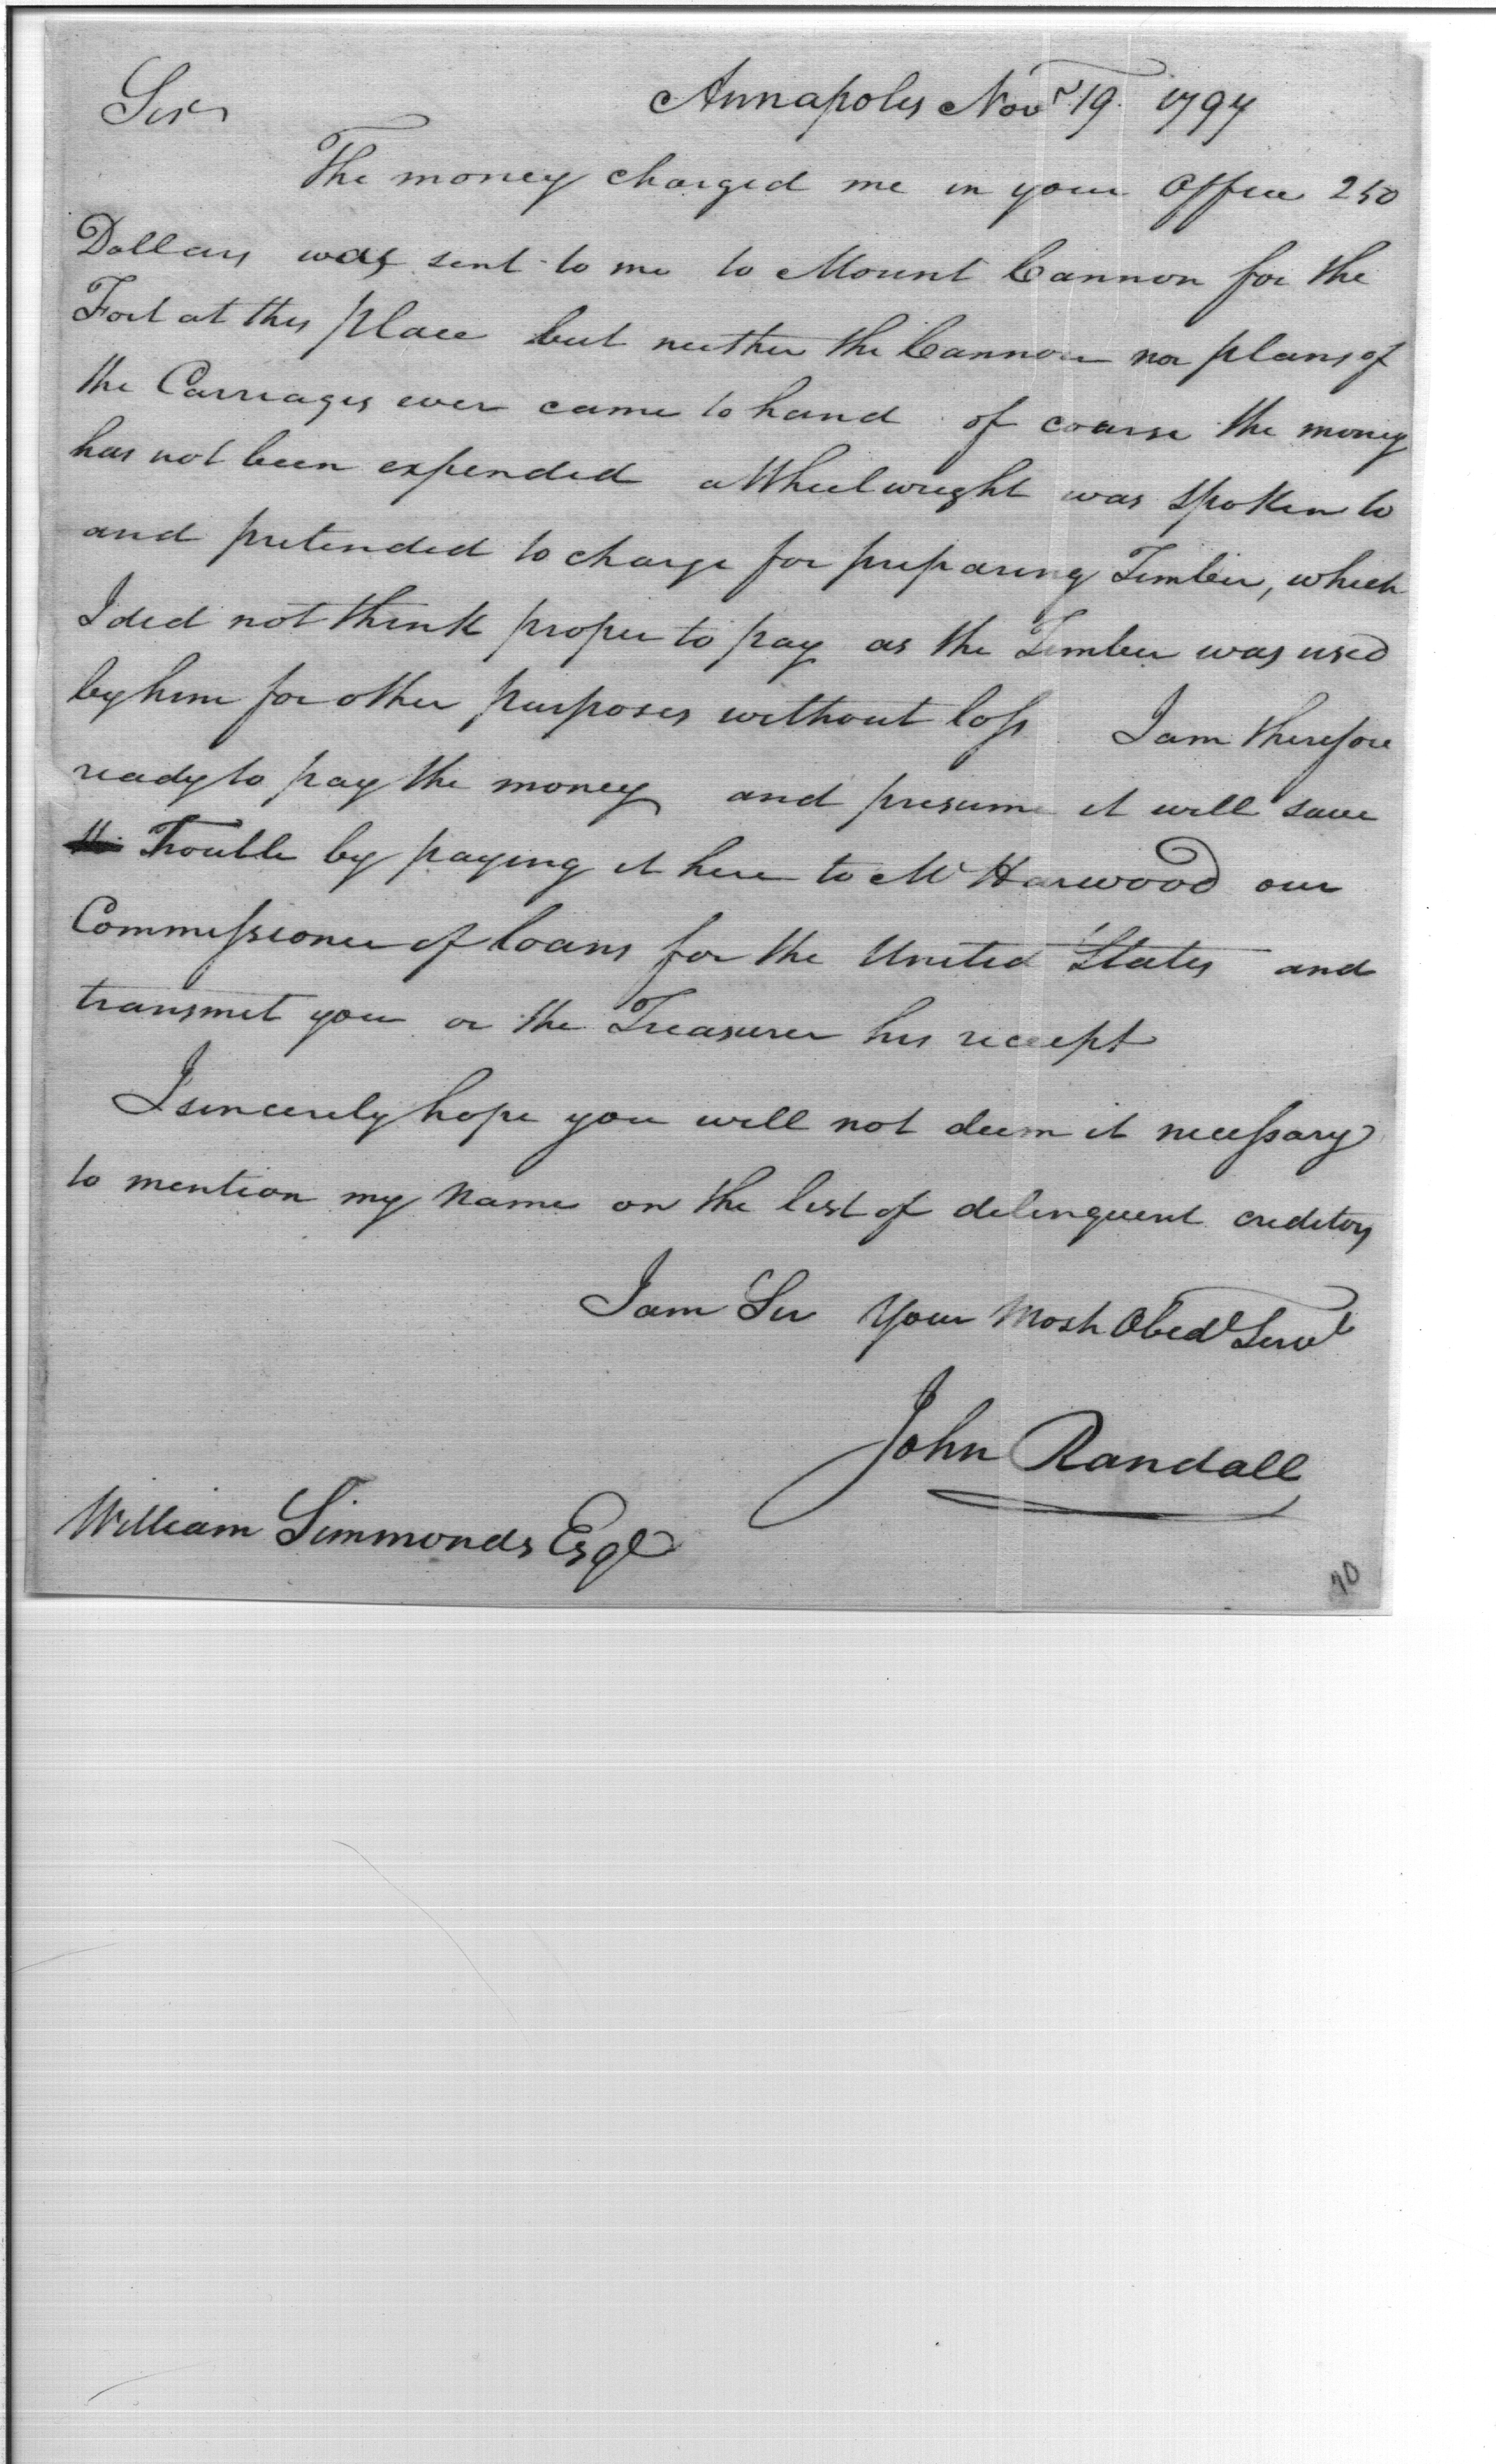 Sir
Annapolis Novr 19 1797
The money charged me in your Office 250
Dollars was sent to me to Mount Cannon for the
Fort at this place but neither the Cannon nor plans of
the Carriages ever came to hand of coarse the money
has not been expended a Wheelwright was spoken to
and pretended to charge for preparing Timber, which
I did not think proper to pay as the Timber was used
by him for other purposes without loss I am therefore
ready to pay the money and presume it will save
Trouble by paying it here to Mr Harwood our
Commissioner of loans for the United States and
transmit you or the Treasurer his receipt
I sincerely hope you will not deem it necessary
to mention my name on the list of delinquent creditors
I am Sir Your Most Obedt Servt
John Randall
William Simmonds Esqr
70